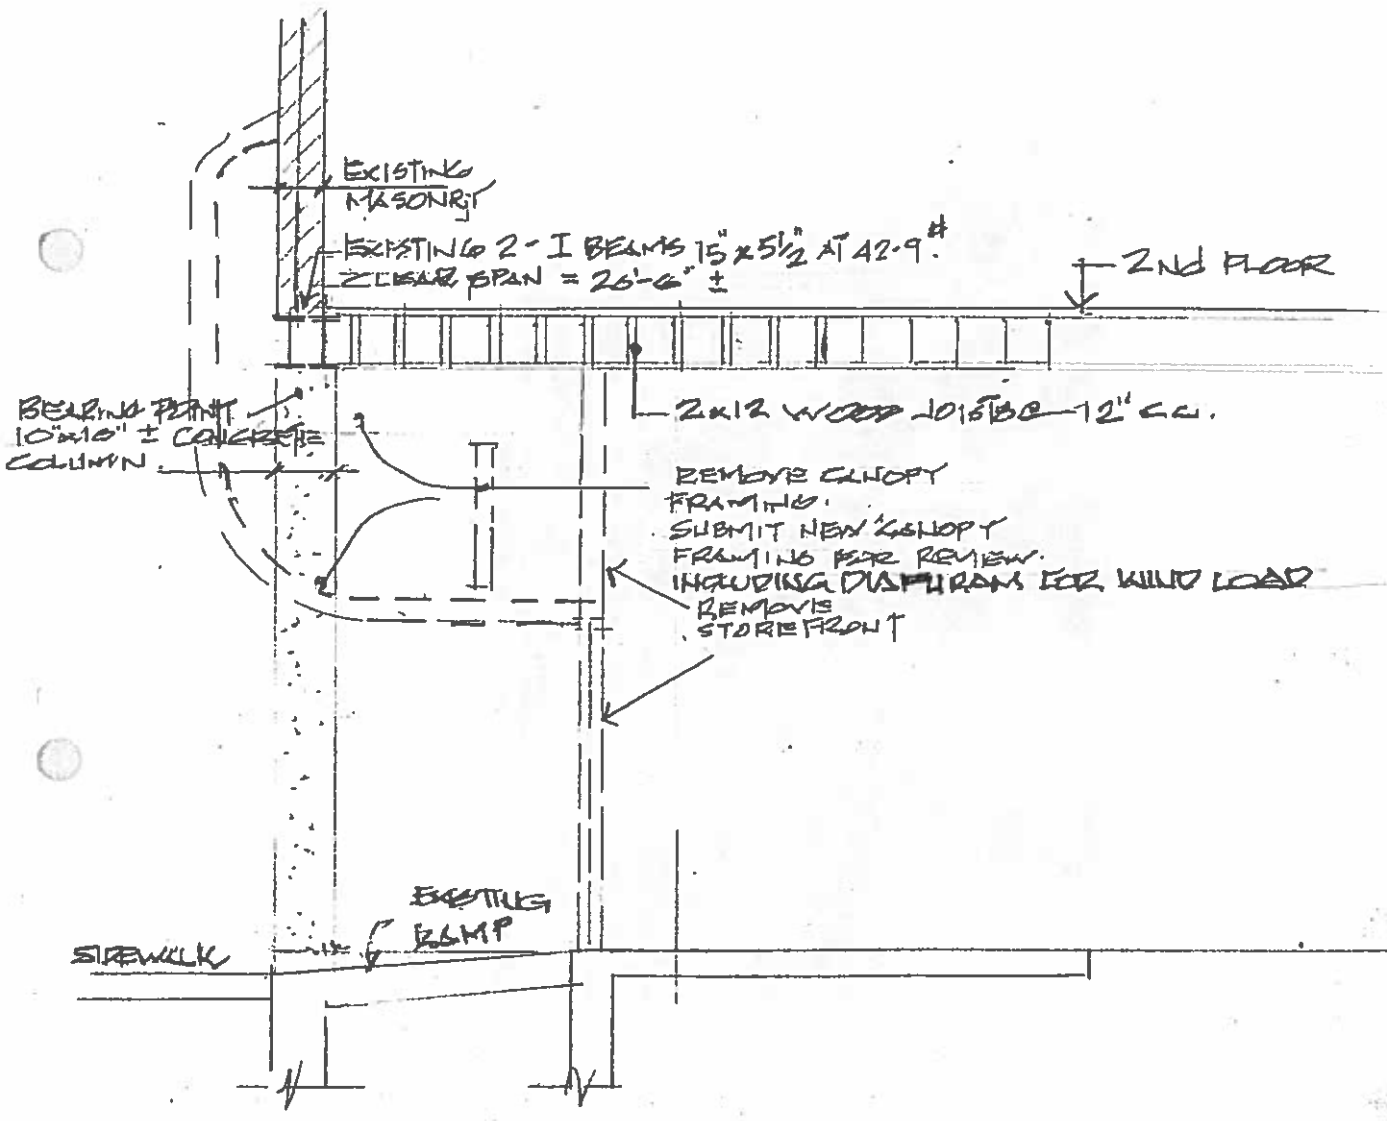 EXISTING
MASONRY
EXISTING 2 - I BEAMS 15" x 5½" AT 42.9#
CLEAR SPAN = 26'-6" ±
2ND FLOOR
BEARING POINT
10"x10" ± CONCRETE
COLUMN
2x12 WOOD JOISTS @ 12" C.C.
REMOVE CANOPY
FRAMING.
SUBMIT NEW CANOPY
FRAMING FOR REVIEW.
INCLUDING DIAPHRAM FOR WIND LOAD
REMOVE
STOREFRONT
EXISTING
RAMP
SIDEWALK